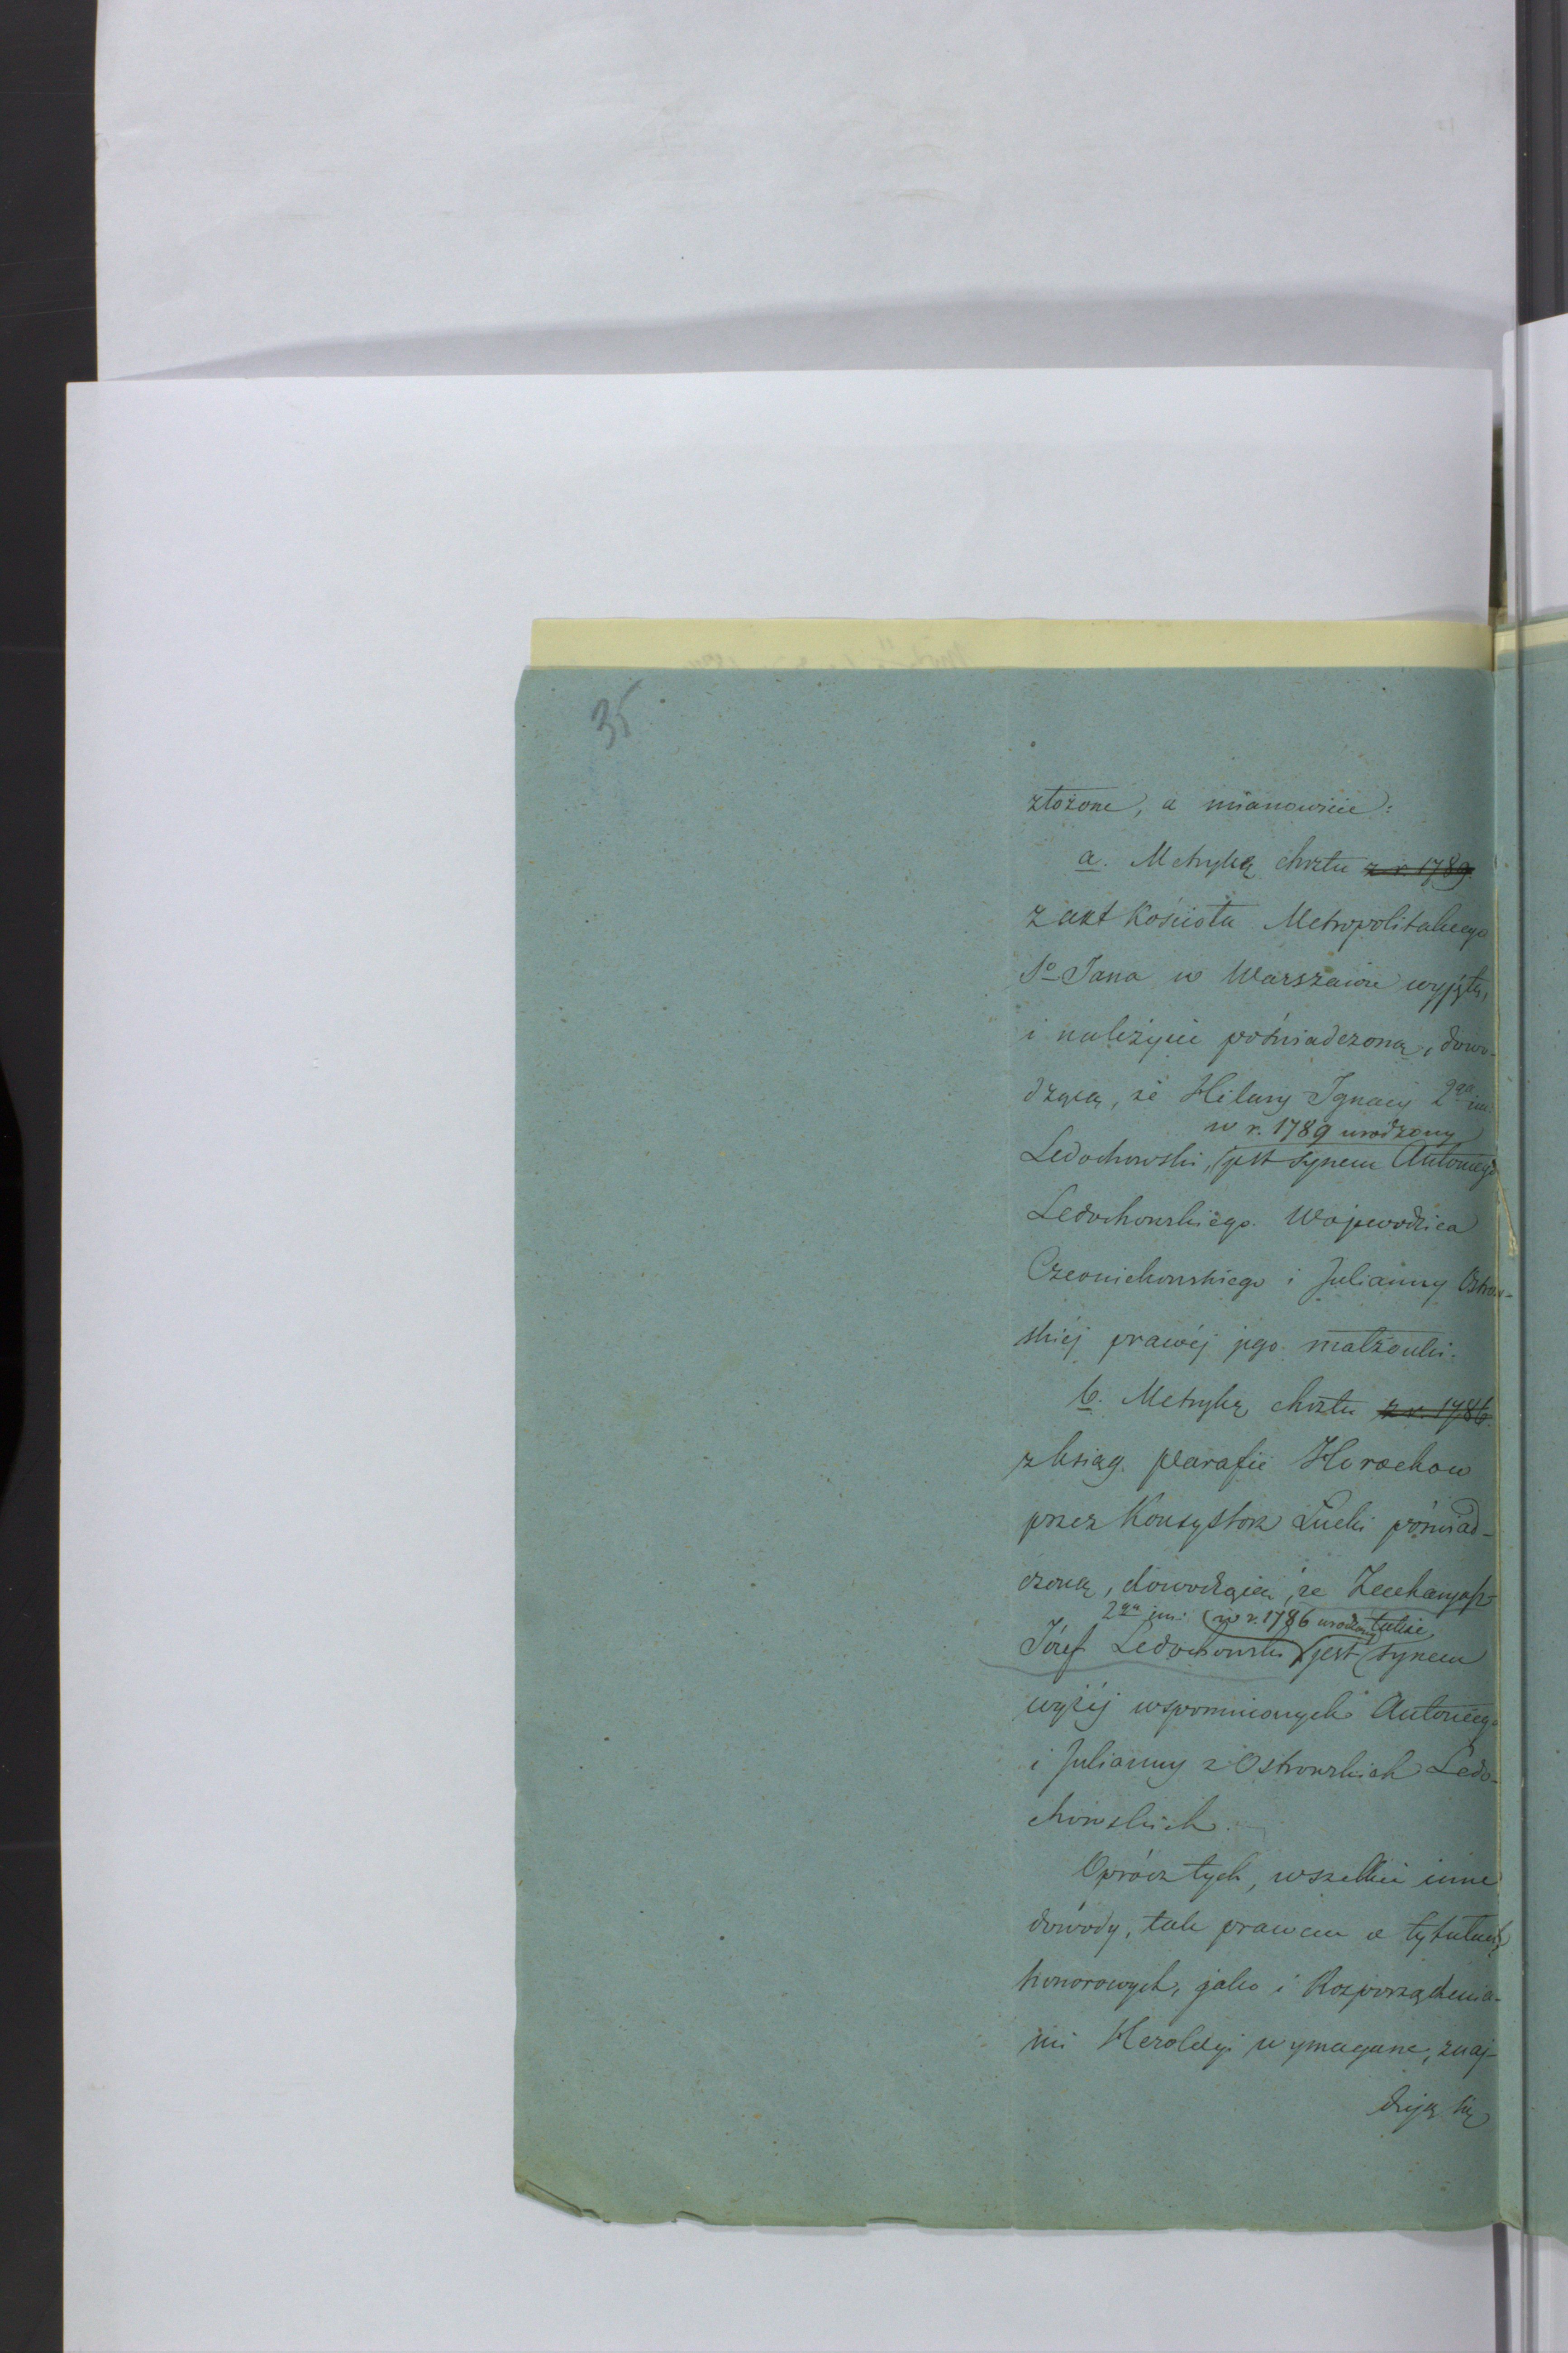 35
złożone, a mianowicie:
a. Metrykę chrztu z r. 1789.
z akt Kościoła Metropolitalnego
Sº Jana w Warszawie wyjętą,
i należycie poświadczoną, dowo-
dzącą, że Hilary Ignacy 2ga im.
w r. 1789 urodzony
Ledochowski, jest synem Antoniego
Ledochowskiego Wojewodzica
Czernichowskiego i Julianny Ostrow-
skiéj prawéj jego małżonki.
b. Metrykę chrztu z r. 1786.
z ksiąg parafii Horochow
przez Konsystorz Łucki poświad-
czoną, dowodzącą, że Zacharyasz
2ga im: w r. 1786 urodzony także
Józef Ledochowski jest synem
wyżéj wspomnionych Antoniego
i Julianny z Ostrowskich Ledo-
chowskich.
Oprócz tych, wszelkie inne
dowody, tak prawem o tytułach
honorowych, jako i Rozporządzenia-
mi Heroldyi wymagane, znaj-
dują się